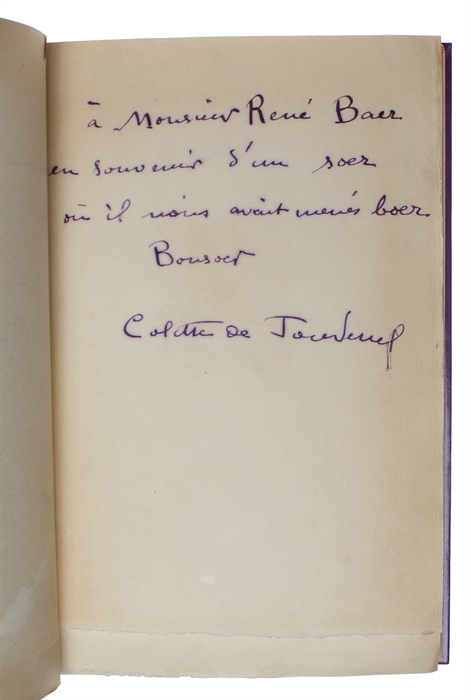 à Monsieur René Baer
en souvenir d'un soer
où il nous avait menés boer.
Bonsoer
Colette de Jouvenel